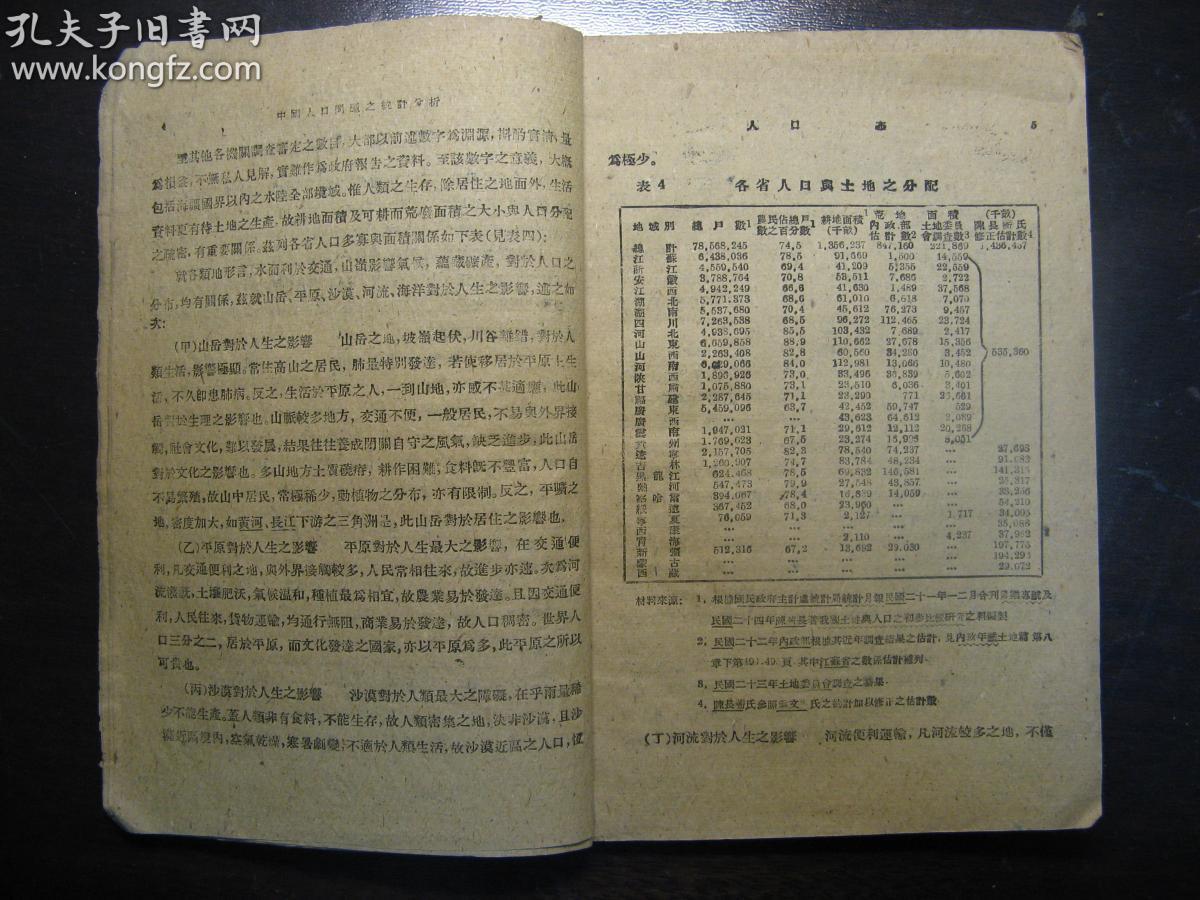 孔夫子旧书网
www.kongfz.com
4 中國人口問題之統計分析
其他各機關調查審定之數目，大部以前述數字為淵源，斟酌實情，量
為損益，不無私人見解，實難作為政府報告之資料。至該數字之意義，大概
包括海疆國界以內之水陸全部境域。惟人類之生存，除居住之地面外，生活
資料更有待土地之生產，故耕地面積及可耕而荒廢面積之大小與人口分配
之疏密，有重要關係，茲列各省人口多寡與面積關係如下表（見表四）：
就各類地形言，水面利於交通，山嶺影響氣候，蘊藏礦產，對於人口之
分布，均有關係，茲就山岳、平原、沙漠、河流、海洋對於人生之影響，述之如
次：
（甲）山岳對於人生之影響　山岳之地，坡嶺起伏，川谷錯，對於人
類生活，影響極顯。常住高山之居民，肺量特別發達，若使移居於平原上生
活，不久卽患肺病。反之，生活於平原之人，一到山地，亦感不甚適應，此山
岳對於生理之影響也。山脈較多地方，交通不便，一般居民，不易與外界接
觸，社會文化，難以發展，結果往往養成閉關自守之風氣，缺乏進步，此山岳
對於文化之影響也。多山地方土質磽瘠，耕作困難，食料旣不豐富，人口自
不易繁殖，故山中居民，常極稀少，動植物之分布，亦有限制。反之，平曠之
地，密度加大，如黃河、長江下游之三角洲是，此山岳對於居住之影響也。
（乙）平原對於人生之影響　平原對於人生最大之影響，在交通便
利，凡交通便利之地，與外界接觸較多，人民常相往來，故進步亦速。次為河
流灌漑，土壤肥沃，氣候溫和，種植最為相宜，故農業易於發達。且因交通便
利，人民往來，貨物運輸，均通行無阻，商業易於發達，故人口稠密。世界人
口三分之二，居於平原，而文化發達之國家，亦以平原為多，此平原之所以
可貴也。
（丙）沙漠對於人生之影響　沙漠對於人類最大之障礙，在乎雨量稀
少不能生產。蓋人類非有食料，不能生存，故人類密集之地，決非沙漠，且沙
漠近區境內，空氣乾燥，寒暑劇變，不適於人類生活，故沙漠近區之人口，
人口 5
為極少。
表4 各省人口與土地之分配
地域別 總戶數1 農民佔總戶數之百分數1 耕地面積1（千畝） 荒地面積（千畝） 內政部估計數2 土地委員會調查數3 陳長蘅氏修正估計數4
總計 78,568,245 74,5 1,356,237 847,160 221,869 1,436,457
江蘇 6,438,036 78,5 91,669 1,500 14,559
浙江 4,559,540 69,4 41,209 5,355 22,559
安徽 3,788,764 70,8 53,511 7,686 2,722
江西 4,942,249 66,6 41,630 1,489 37,568
湖北 5,771,373 68,6 61,010 6,618 7,070
湖南 5,537,680 70,4 45,612 76,273 9,457
四川 7,263,538 68,5 96,272 112,465 23,724
河北 4,938,695 85,5 103,432 7,689 2,417
山東 6,659,858 88,9 110,662 27,678 15,356
山西 2,263,408 82,8 60,560 34,280 3,452 535,360
河南 84,0 112,981 13,066 10,480
陝西 1,893,926 73,0 33,496 35,839 5,602
甘肅 1,075,880 73,1 23,510 6,036 3,401
福建 2,287,645 71,1 23,290 771
廣東 5,459,096 63,7 42,452 59,747 529
廣西 ... ... 43,623 64,612 2,089
雲南 1,947,021 71,1 29,612 12,112 20,258
貴州 1,769,023 67,5 23,274 8,051
遼寧 2,157,705 82,3 78,540 74,237 ...
吉林 1,260,907 74,7 83,784 48,234 ...
黑龍江 624,468 78,5 69,832 146,581 ...
熱河 547,473 79,9 27,548 43,857 ...
察哈爾 394,067 78,4 14,059 ...
綏遠 367,452 68,0 ... ...
寧夏 76,059 71,3 2,127 ... 1,717 34,005
西康 ... ... ... ... ... 35,088
青海 ... ... 2,110 ... 4,237 37,982
新疆 512,316 67,2 13,692 29,030 ... 197,775
蒙古 ... ... ... ... ... 194,294
西藏 ... ... ... ... ... 29,072
材料來源： 1. 根據國民政府主計處統計局統計月報民國二十一年一二月合刊農業專號及
民國二十四年陳長蘅著我國土地與人口之初步比較研究之編製
2. 民國二十二年內政部根據其近年調查結果之估計，見內政年鑑土地篇第八
章下第頁，其中江蘇省之數係估計補列。
3. 民國二十三年土地委員會調查之結果
4. 陳長蘅氏參照氏之估計加以修正之估計數
（丁）河流對於人生之影響　河流便利運輸，凡河流較多之地，不僅